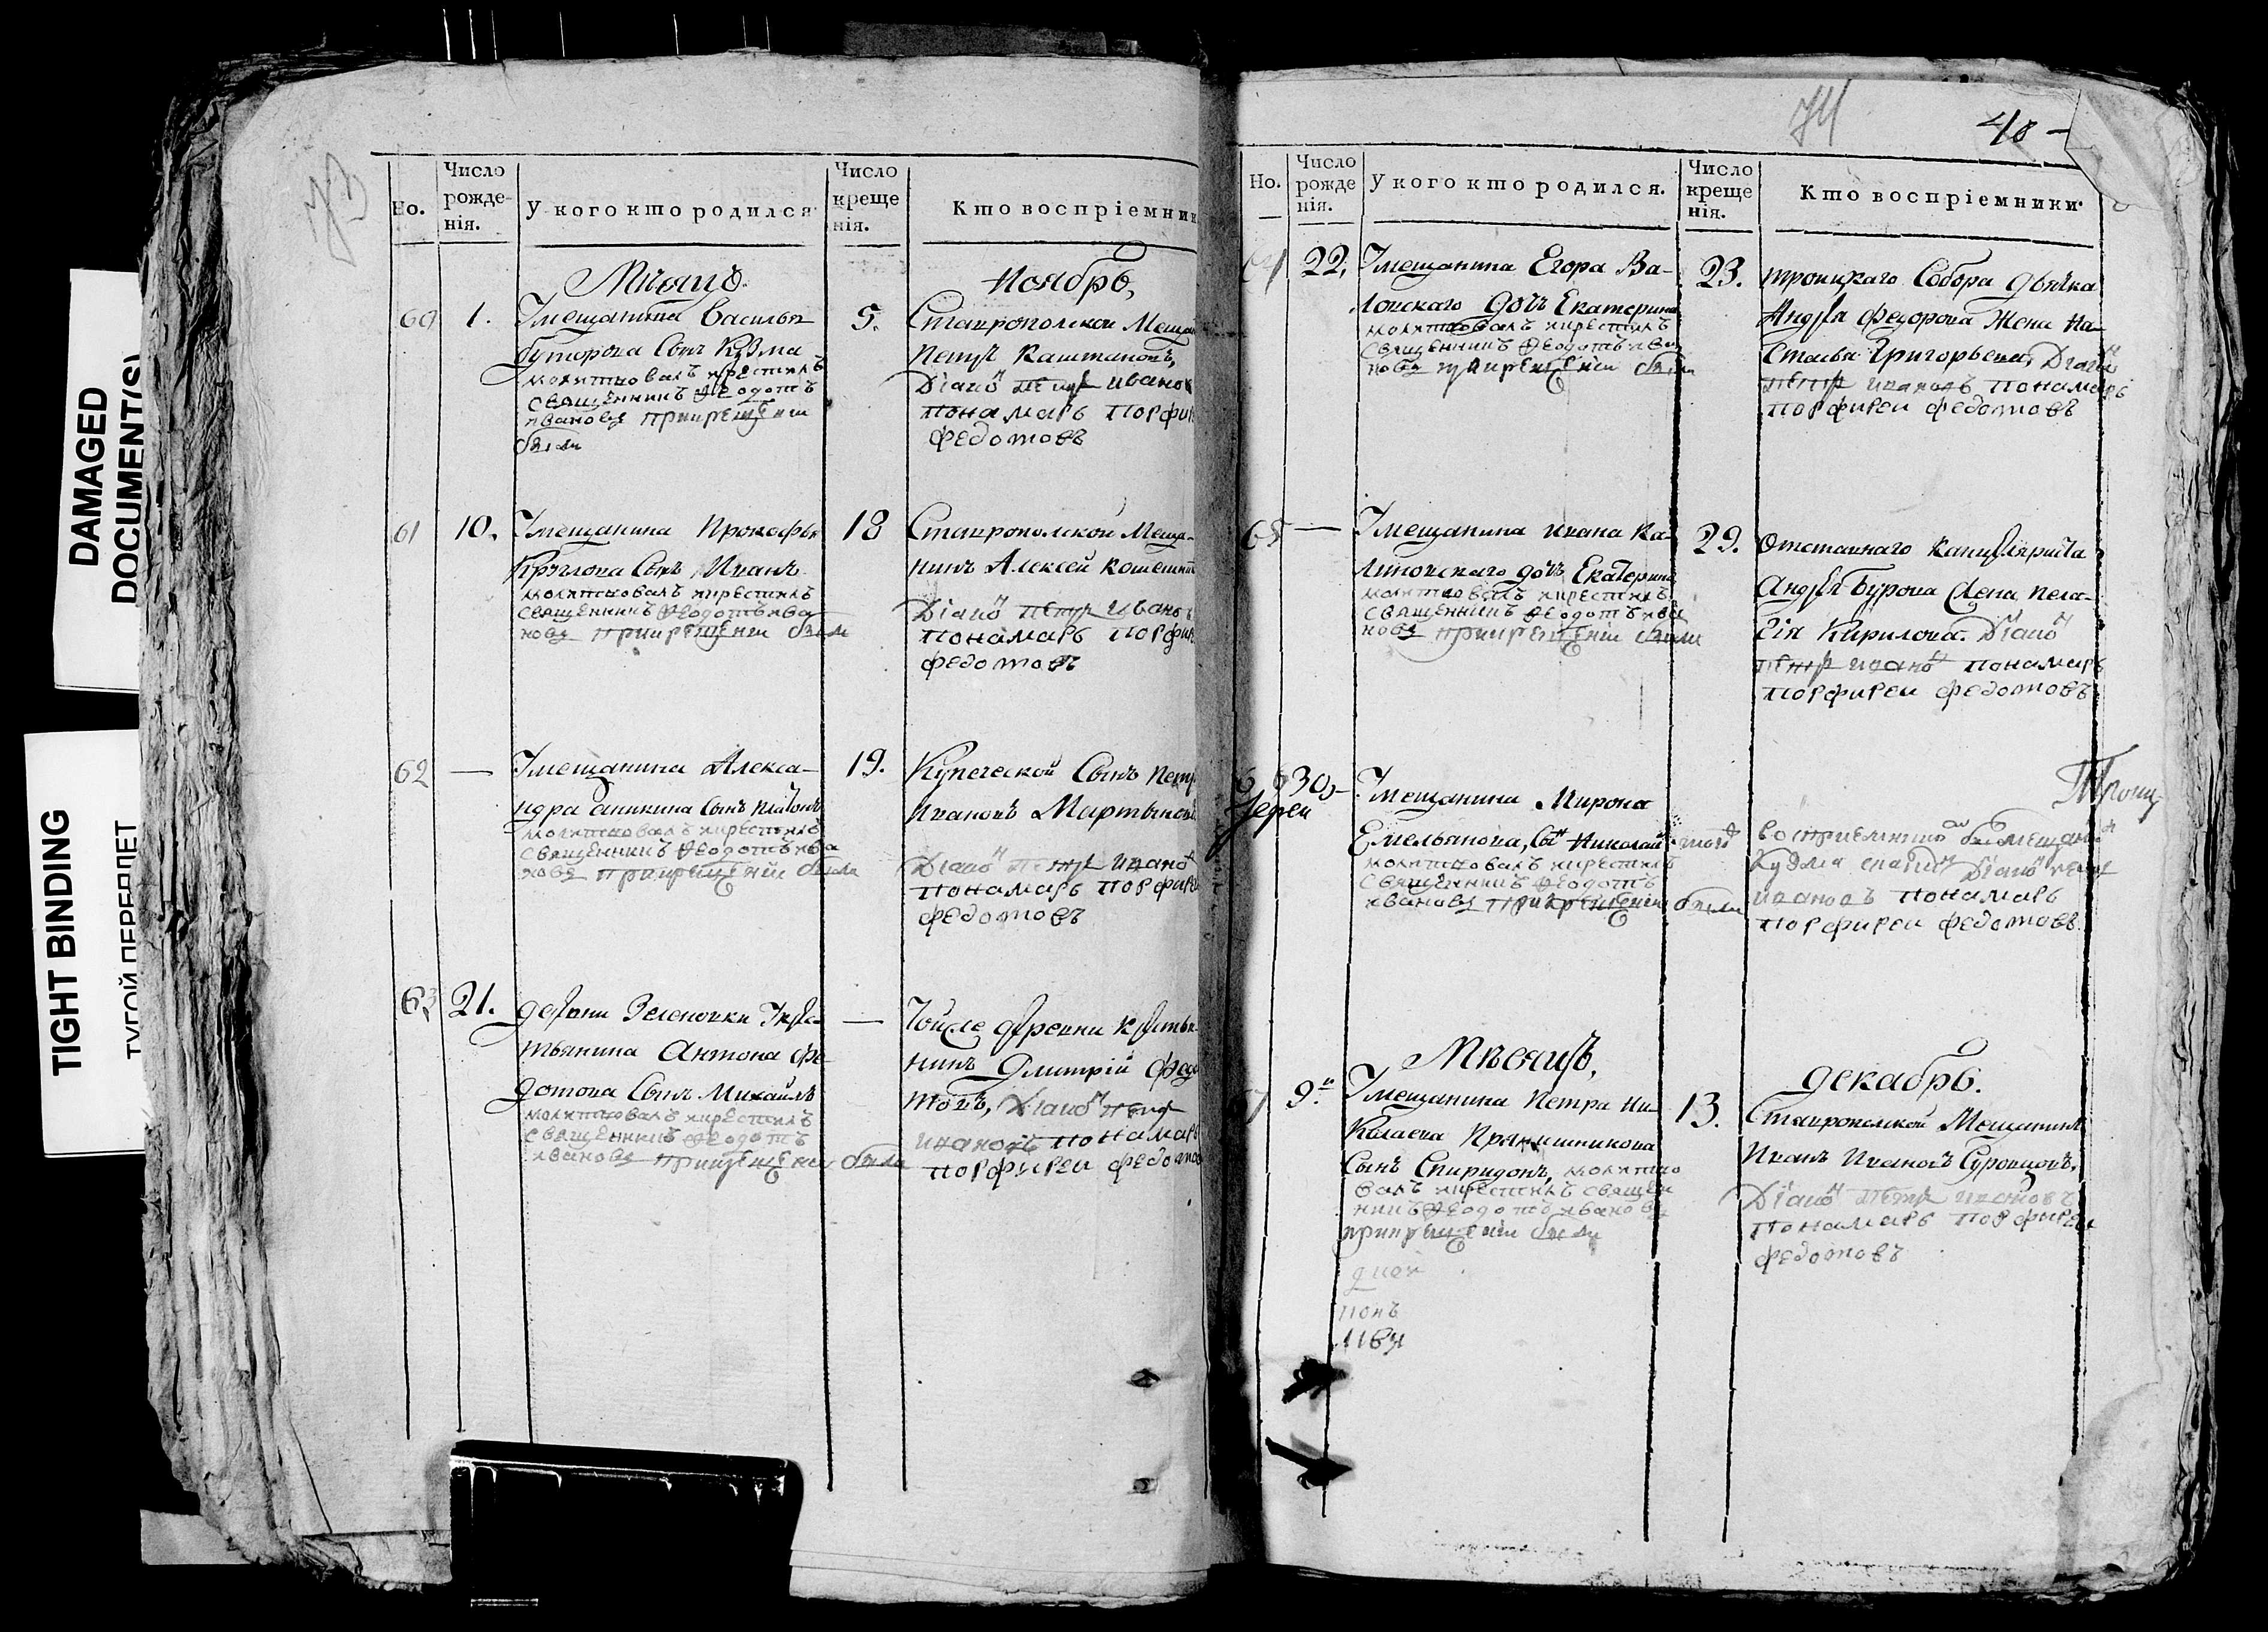 DAMAGED
DOCUMENT(S)
TIGHT BINDING
ТУГОЙ ПЕРЕПЛЕТ
73
Но.
Число рожденія.
У кого кто родился
Число крещенія.
Кто воспріемник
Мѣсяцъ.
Ноябрь,
60
1.
Умещанина Василья
буторова Сынъ Кузма
молитвовалъ икрестилъ
Священникъ Ѳеодотъ
ивановъ прикрещении
были
5.
Ставрополской Меща
Петръ Каштановъ,
Діако петръ иванов
понамарь порфир
федотовъ
61
10.
Умещанина Прокофья
Круглова Сынъ Иванъ
молитвовалъ икрестилъ
священникъ Ѳеодотъ ива
новъ прикрещении были
18
Ставрополской Меща-
нинъ Алексей
Діако петръ иванов
понамарь порфир
федотовъ
62
—
Умещанина Алекса-
ндра аникина Сынъ платонъ
молитвовалъ икрестилъ
священникъ Ѳеодотъ ива
новъ прикрещении были
19.
Купеческой Сынъ петр
Ивановъ Мартынов
Діако петръ ивано
понамарь порфире
федотовъ
63
21.
дервни Зеленовки Укрес-
тьянина Антона Фе-
дотова Сынъ Михайлъ
молитвовалъ икрестилъ
священникъ Ѳеодотъ
ивановъ прикрещении были
—
Тойже деревни крестья-
нинъ Дмитрій Федо
товъ, Діако петръ
ивановъ понамарь
порфиреи федотов
74
48 —
Но.
Число рожденія.
У кого кто родился.
Число крещенія.
Кто воспріемники.
64
22,
Умещанина Егора Ва-
лонскаго дочь Екатерина
молитвовалъ икрестилъ
священникъ Ѳеодотъ ива
новъ прикрещении были
23.
троицкаго Собора дьячка
Андрея Федорова Жена На-
стасья Григорьева, Діако
петръ ивановъ понамарь
порфиреи федотовъ
65
—
Умещанина ивана Ка-
линовскаго дочь Екатерина
молитвовалъ икрестилъ
священникъ Ѳеодотъ ива
новъ прикрещении были
29.
Отставнаго канцеляриста
андрея бурова жена пела-
гія Кирилова. Діако
петръ ивано понамарь
порфиреи федотовъ
Троиц-
6
30,—
Іереи
Умещанина Мирона
Емельянова, Сы Николай
молитвовалъ икрестилъ
Священникъ Ѳеодотъ
ивановъ прикрещении были
восприемнико бы мещани
Кузма Діако петр
ивановъ понамарь
порфиреи федотовъ
Мѣсяцъ,
декабрь.
7
9.
Умещанина Петра Ни-
колаева Прянишникова
Сынъ Спиридонъ, молитво
валъ икрестилъ священ
никъ Ѳеодотъ ивановъ
прикрещении были
13.
Ставрополской Мещанинъ
Иванъ Ивановъ Суровцовъ.
Діако петръ ивановъ
понамарь порфиреи
федотовъ